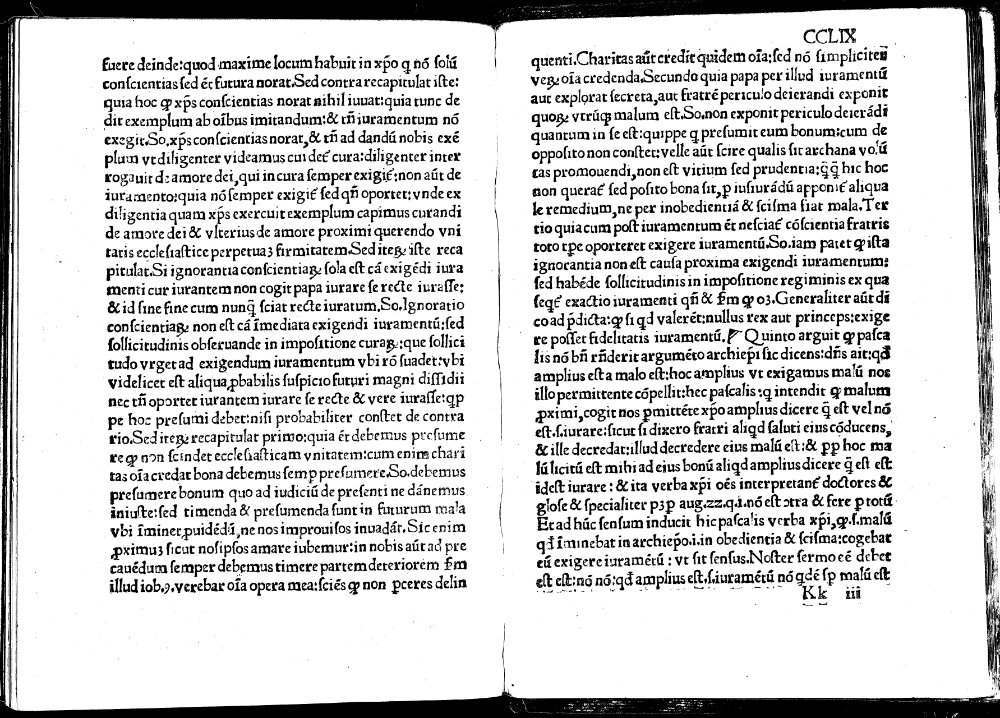 fuere deinde:quod maxime locum habuit in xp̄o ꝗ nō ſolū
conſcientias ſed ēt futura norat.Sed contra recapitulat iſte:
quia hoc ꝙ xp̄s conſcientias norat nihil iuuat:quia tunc de
dit exemplum ab oībus imitandum:& tn̄ iuramentum nō
exegit.So.xp̄s conſcientias norat,& tn̄ ad dandū nobis exē
plum vt diligenter videamus cui det̄ cura:diligenter inter
rogauit de amore dei,qui in cura ſemper exigit̄:non aūt de
iuramento:quia nō ſemper exigit̄ ſed qn̄ oportet:vnde ex
diligentia quam xp̄s exercuit exemplum capimus curandi
de amore dei & vlterius de amore proximi querendo vni
tatis eccleſiaſtice perpetuaꝫ firmitatem.Sed iteꝝ iſte reca
pitulat.Si ignorantia conſcientiaꝝ ſola eſt cā exigēdi iura
menti cur iurantem non cogit papa iurare ſe recte iuraſſe:
& id ſine fine cum nunꝗ̄ ſciat recte iuratum.So.Ignoratio
conſcientiaꝝ non eſt cā īmediata exigendi iuramentū:ſed
ſollicitudinis obſeruande in impoſitione curaꝝ:que ſollici
tudo vrget ad exigendum iuramentum vbi rō ſuadet:vbi
videlicet eſt aliqua ꝓbabilis ſuſpicio futuri magni diſſidii
nec tn̄ oportet iurantem iurare ſe recte & vere iuraſſe:ꝗp
pe hoc preſumi debet:niſi probabiliter conſtet de contra
rio.Sed iteꝝ recapitulat primo:quia ēt debemus preſume
re ꝙ non ſcindet eccleſiaſticam vnitatem:cum enim chari
tas oīa credat bona debemus ſemp preſumere.So.debemus
preſumere bonum quo ad iudiciū de preſenti ne dānemus
iniuſte:ſed timenda & preſumenda ſunt in futurum mala
vbi īminet ꝓuidēdū,ne nos improuiſos inuadāt.Sic enim
ꝓximuꝫ ſicut noſipſos amare iubemur:in nobis aūt ad pre
cauēdum ſemper debemus timere partem deteriorem ẜm
illud iob.9.verebar oīa opera mea:ſciēs ꝙ non ꝑceres delin
CCLIX
quenti.Charitas aūt credit quidem oīa:ſed nō ſimpliciter
veꝝ oīa credenda.Secundo quia papa per illud iuramentū
aut explorat ſecreta,aut fratrē periculo deierandi exponit
quoꝝ vtrūꝙ malum eſt.So.non exponit periculo deierādi
quantum in ſe eſt:quippe ꝗ preſumit eum bonum:cum de
oppoſito non conſtet:velle aūt ſcire qualis ſit archana volū
tas promouendi,non eſt vitium ſed prudentia:ꝗ̄ꝗ̄ hic hoc
non querat̄ ſed poſito bona ſit,ꝑ iuſiurādū apponit̄ aliqua
le remedium,ne per inobedientiā & ſciſma fiat mala.Ter
tio quia cum poſt iuramentum ēt neſciat̄ cōſcientia fratris
toto tꝑe oporteret exigere iuramentū.So.iam patet ꝙ iſta
ignorantia non eſt cauſa proxima exigendi iuramentum:
ſed habēde ſollicitudinis in impoſitione regiminis ex qua
ſeqt̄ exactio iuramenti qn̄ & ẜm ꝙ oꝫ.Generaliter aūt di
co ad p̄dicta:ꝙ ſi qd̄ valerēt:nullus rex aut princeps:exige
re poſſet fidelitatis iuramentū. Quinto arguit ꝙ paſca
lis nō bn̄ rn̄derit argumēto archiep̄i ſic dicens:dn̄s ait:qd̄
amplius eſt a malo eſt:hoc amplius vt exigamus malū nos
illo permittente cōpellit:hec paſcalis:ꝗ intendit ꝙ malum
ꝓximi,cogit nos ꝑmittēte xp̄o amplius dicere ꝗ̄ eſt vel nō
eſt.ſ.iurare:ſicut ſi dixero fratri aliqd̄ ſaluti eius cōducens,
& ille decredat:illud decredere eius malū eſt:& ꝓp hoc ma
lū licitū eſt mihi ad eius bonū aliqd̄ amplius dicere ꝗ̄ eſt eſt
ideſt iurare : & ita verba xp̄i oēs interpretant̄ doctores &
gloſe & ſpecialiter pꝫp aug.22.q.i.nō eſt ↄtra & fere ꝑ totū
Et ad hūc ſenſum inducit hic paſcalis verba xp̄i,ꝙ.ſ.malū
qd̄ īminebat in archiep̄o.i.in obedientia & ſciſma:cogebat
eū exigere iuramētū : vt ſit ſenſus.Noſter ſermo eē debet
eſt eſt:nō nō:qd̄ amplius eſt.ſ.iuramētū nō qdē ſp̄ malū eſt
Kk iii